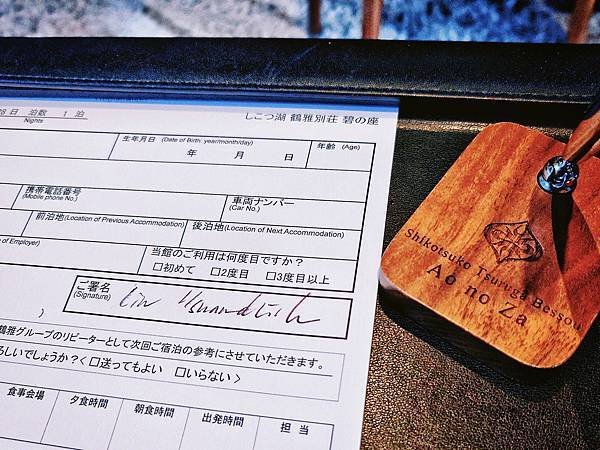 28日 泊数 1 泊
Nights
しこつ湖 鶴雅別荘 碧の座
生年月日 (Date of Birth: year/month/day)
年 月 日
年齢 (Age)
携帯電話番号
(Mobile phone No.)
車両ナンバー
(Car No.)
前泊地(Location of Previous Accommodation)
後泊地(Location of Next Accommodation)
of Employer)
当館のご利用は何度目ですか?
□初めて □2度目 □3度目以上
ご署名
(Signature)
)
鶴雅グループのリピーターとして次回ご宿泊の参考にさせていただきます。
ろしいでしょうか?〈□送ってもよい □いらない〉
食事会場
夕食時間
朝食時間
出発時間
担 当
Shikotsuko Tsuruga Bessou
Ao no Za